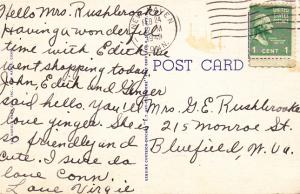 Hello Mrs. Rushbrooke
Having a wonderful
time with Edith. We
went shopping today.
John, Edith and Ginger
said hello. You'll
love ginger. She is
so friendly and
cute. I sure do
love Conn.
Love Virgie
NEW HAVEN
FEB 24
CONN.
1 CENT 1
POST CARD
Mrs. G. E. Rushbrooke
215 Monroe St.
Bluefield, W. Va.